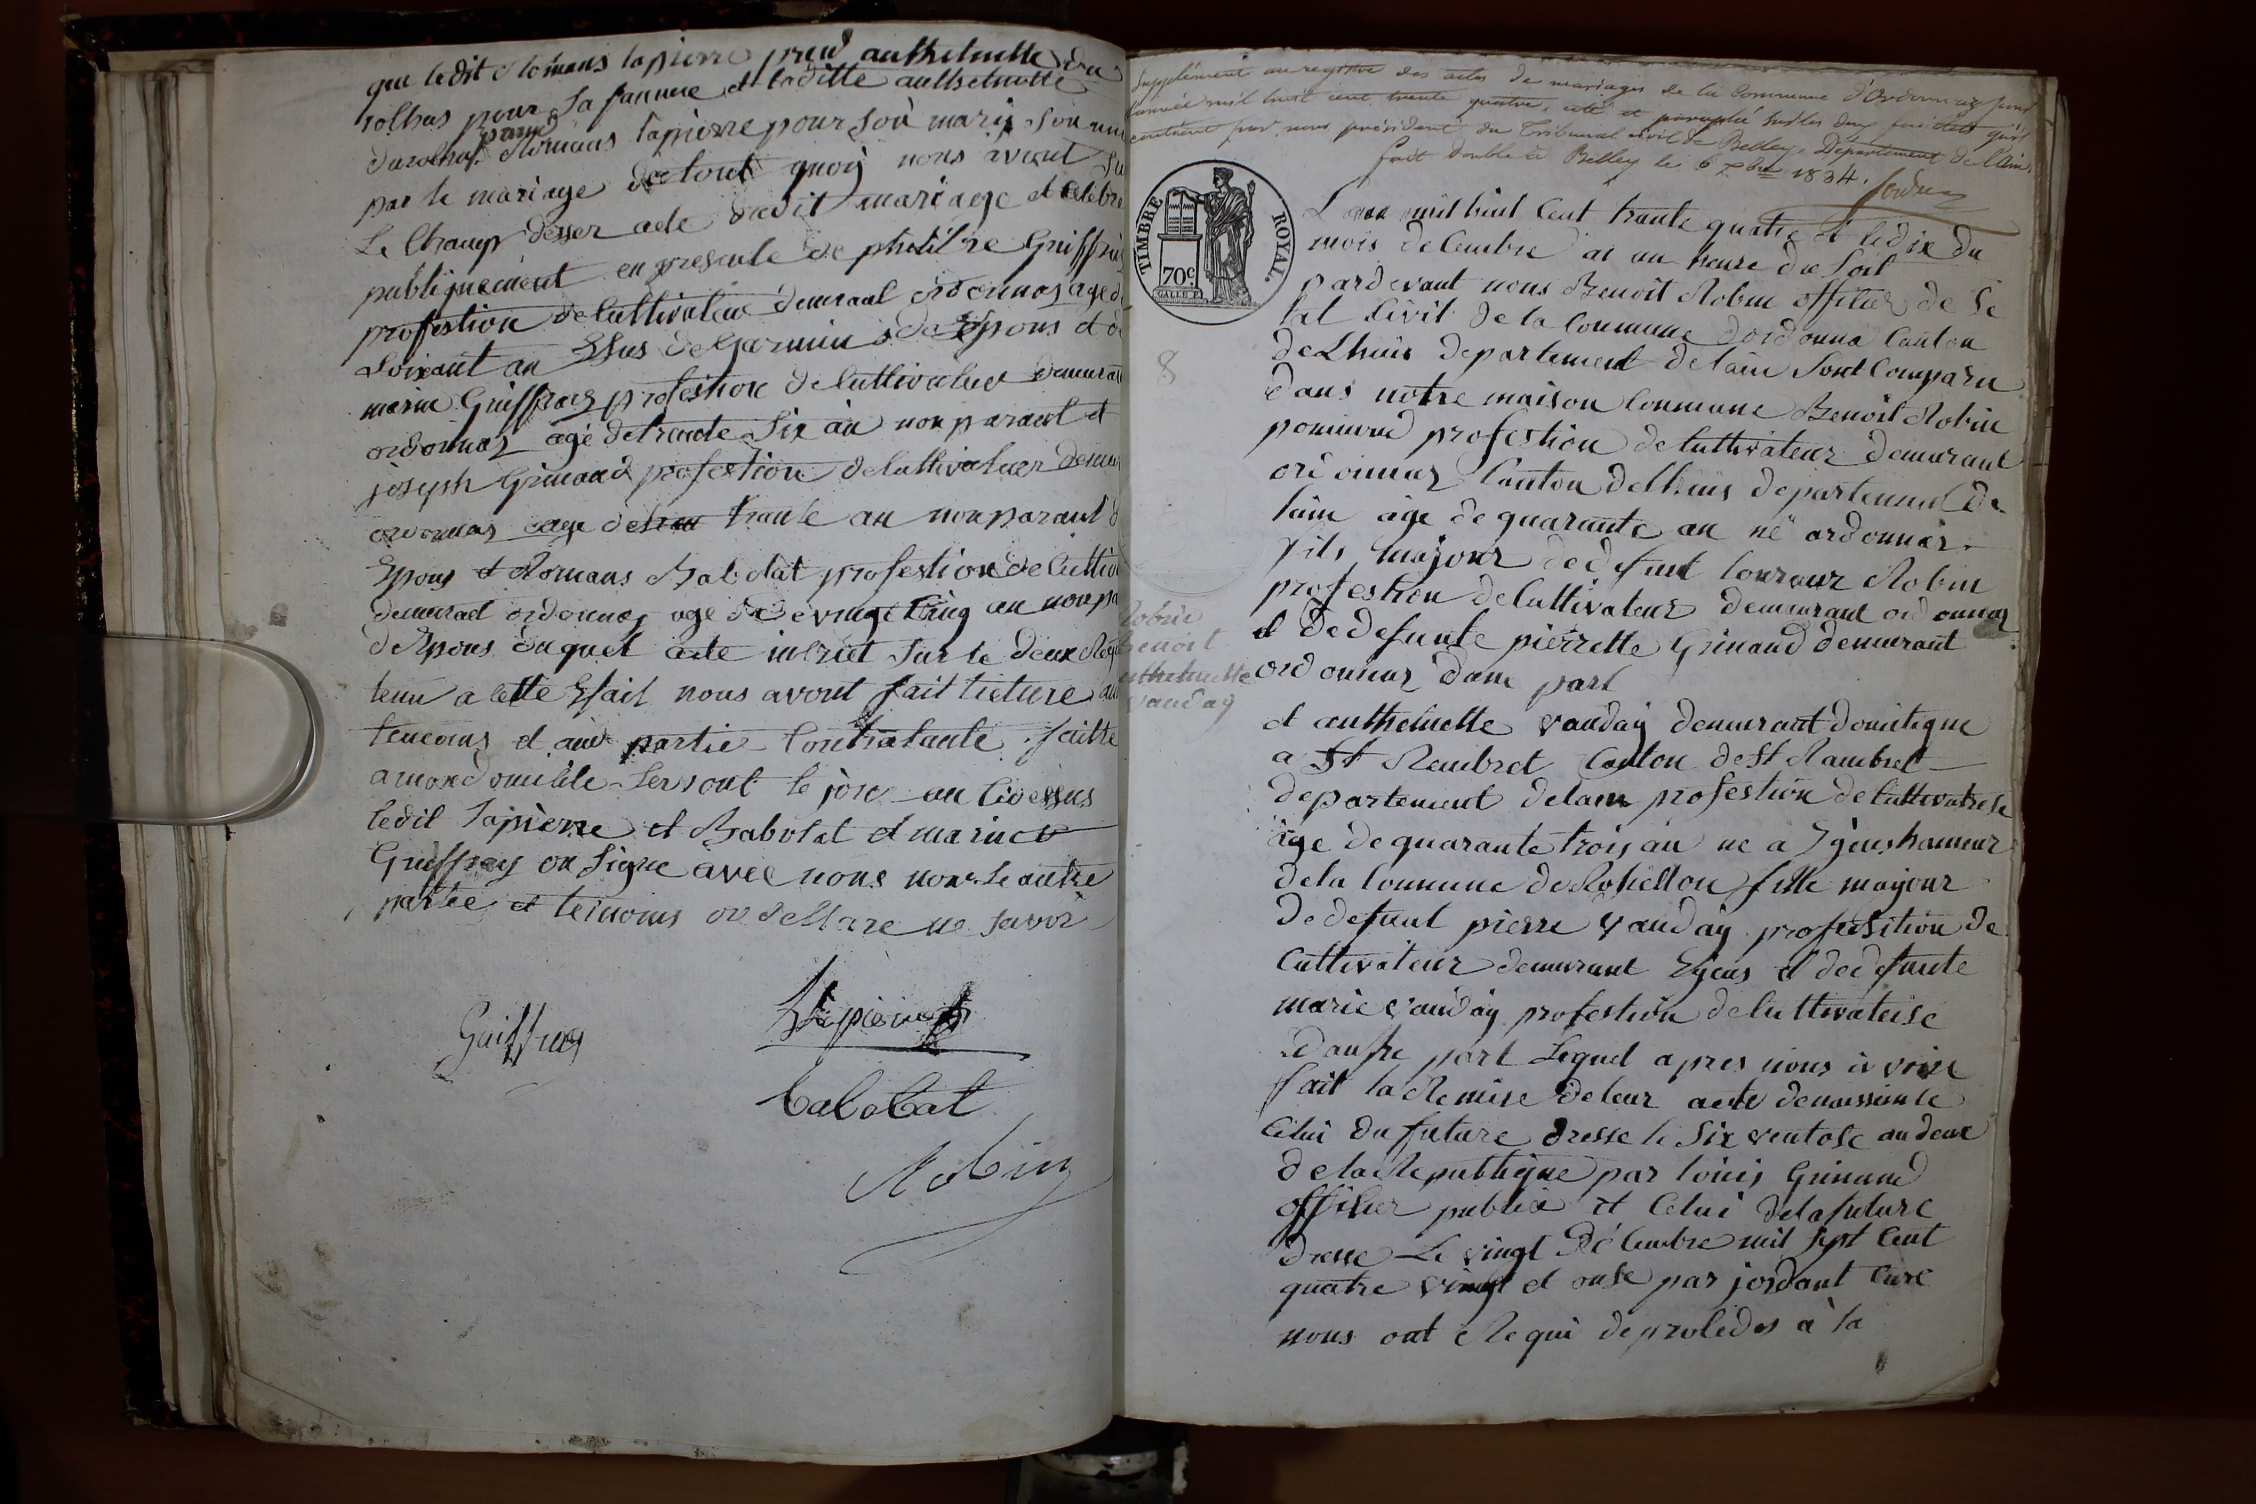 que ledit Romans lapierre prend anthelmette du
rolhas pour sa famme et laditte anthelmette
durolhas prend Romans lapierre pour son mari son uni
par le mariage de tout quoy nous avont su
Le Champ desser acte dudit mariage et celebre
publiquement en presence de philibre Guiffrey
profestion de Cultivateur demurant ordonnaz age de
soixant an Esus de Garmin de Epous et de
marin Guiffray profestion de Cultivateur demurant
ordonnaz agé detrante six an non parant et
joseph Grinand profestion de Cultivateur demur
ordonnas age de trante an non parant d
Epous et Romans Babolat profestion de Cultiv
demurant ordonnaz age de vingt Cinq an non pa
d Epous Duquel acte inscriet sur le deux Reg
tenu a cette Efait nous avont fait lecture au
temoins et aux partie Contratante faitte
a mon domicile Lersont le jour an Cidessus
ledit lapierre et Babolat et marin
Guiffrey on signe avec nous nom le autre
partie et temoins on declare ne savoir
Guiffrey
Lapierre
Babolat
Robin
Supplément au registre des actes de mariages de la Commune d'Ordonnaz pour
l'année mil huit cent trente quatre, coté et paraphé sur les deux feuillets qu'il
contient par nous président du Tribunal civil de Belley, Département de l'Ain,
fait double à Belley le 6 Xbre 1834.
TIMBRE ROYAL.
70c.
8
Robin
Benoit
anthelmette
vanday
L an mil huit Cent trante quatre et le dix du
mois decembre a un heure du soit
pardevant nous Benoit Robin officier de le
tat Civil de la Commune dordonna Canton
de Lhuis departement delain sont Comparu
dans notre maison Commune Benoit Robin
pommind profestion de Cultivateur demurant
ordonnaz Canton delhuis departement de
lain age de quarante an né ordonnaz
fils majour dedefunt louraur Robin
profestion de Cultivateur demurant ordonnaz
et De defunte pierrette Grinand demurant
ordonnaz dune part
et anthelmette vanday demurant domitique
a St Rembret Canton de St Rambret
departement delain profestion de Cultivatrise
age de quarante trois an ne a Egieus hameur
de la Commune de Rosiellon fille mayour
De defunt pierre vanday profestition de
Cultivateur demurant Egieus et dedefunte
marie vanday profestion de Cultivateise
dautre part Lequel apres nous avoire
fait la Remise deleur acte denaissance
Celui du future dresse le six ventose an deux
de la Republique par louis Grinand
officier public et Celui dela future
dresse Le vingt Décembre mil sept Cent
quatre vingt et onse par jordant Cure
nous ont Requi deproceder à la